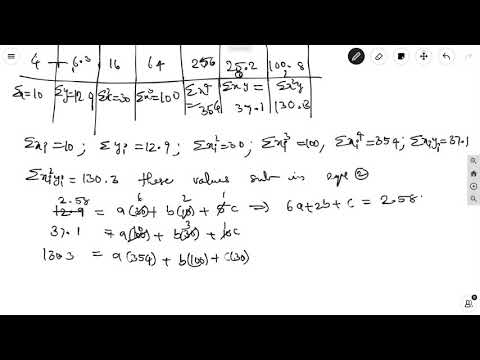 4 6.3 16 64 256 25.2 100.8
Σx=10 Σy=12.9 Σx²=30 Σx³=100 Σx⁴=354 Σxy=37.1 Σx²y 130.3
Σxi=10; Σyi=12.9; Σxi²=30; Σxi³=100, Σxi⁴=354; Σxiyi=37.1
Σxi²yi=130.3 these values sub in eqn ②
2.58 6 2 1
12.9 = a(30)+b(10)+5c ⇒ 6a+2b+c=2.58
37.1 = a(100)+b(30)+10c
130.3 = a(354)+b(100)+c(30)